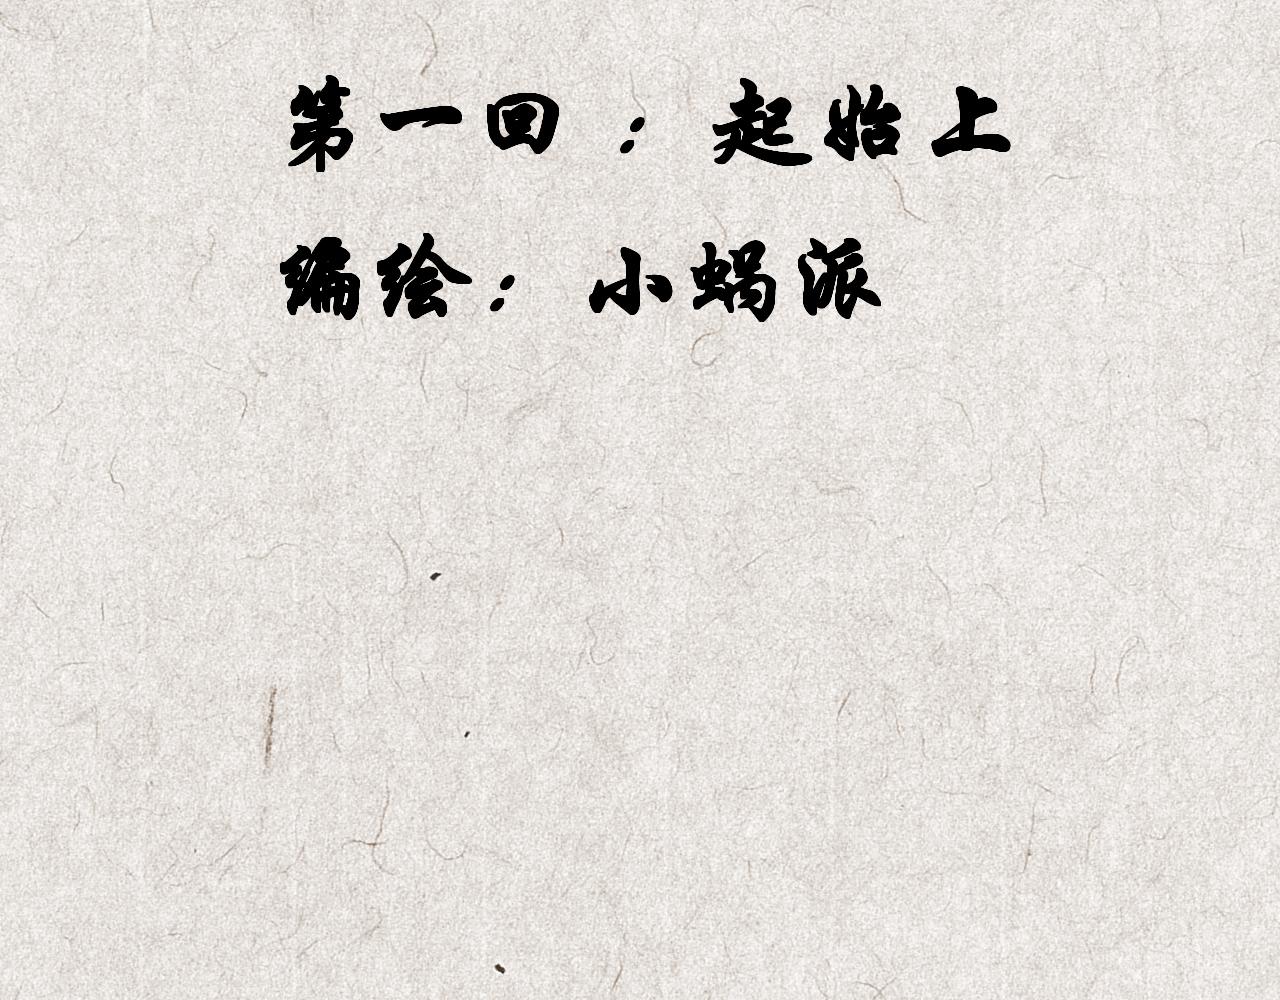 第一回：起始上
编绘：小蜗派